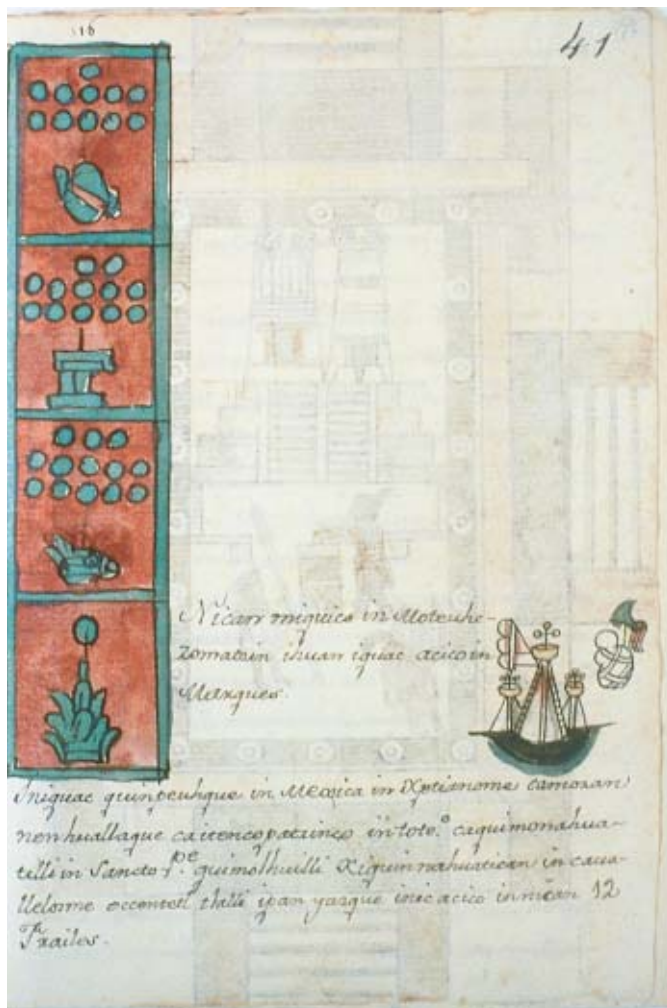 16
41
Nican miquico in Moteuhc-
zomatzin ihuan iquac acico in
Marques.
Iniquac quinpeuhque in Mexica in Xptianome camo zan
nenhuallaque ca itencopatzinco in toto.º caquimonahua-
tilli in Sancto P.e quimolhuilli Xiquinnahuatican in caua-
llelosme occentetl tlalli ipan yazque inic acico in nican 12
Frailes.